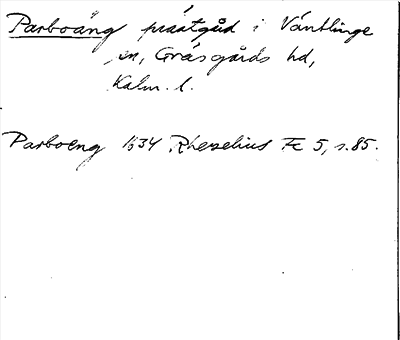 Parboäng prästgård i Ventlinge
sn, Gräsgårds hd,
Kalm. l.
Parboeng 1634 Rhezelius Fc 5, s. 85.